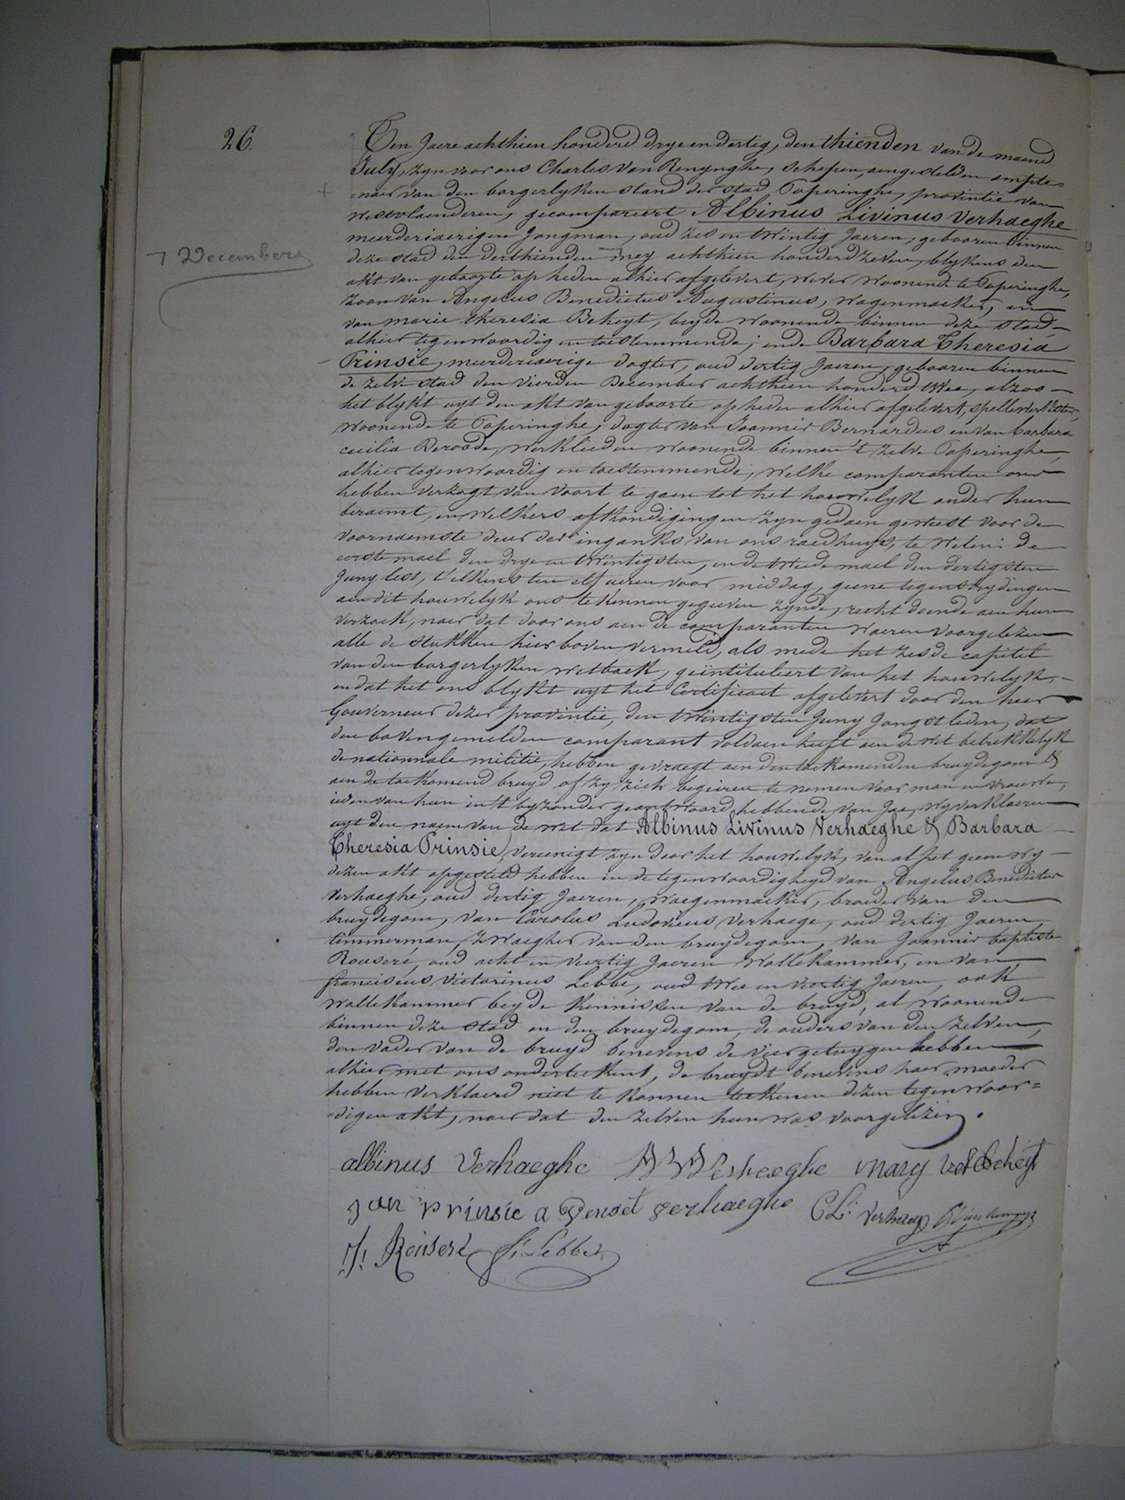 26.
Ten Jaere achthien honderd drye en dertig, den thienden van de maend
July, zyn voor ons Charles Van Renynghe, schepen, aengestelden ampte=
naer van den borgerlyken stand der stad Poperinghe, provintie van
Westvlaenderen, gecompareert Albinus Livinus Verhaeghe
meerderjaerigen Jongman, oud zes en twintig Jaeren, gebooren binnen
7 Decembere
deze stad den derthienden mey achthien honderd zeven, blykens den
akt van geboorte op heden alhier afgelevert, wever woonende te Poperinghe,
zoon van Angelus Benedictus Augustinus, wagenmaeker, en
van marie theresia Beheyt, beyde woonende binnen deze stad
alhier tegenwoordig en toestemmende; ende Barbara Theresia
Prinsie, meerderjaerige dogter, oud dertig Jaeren, gebooren binnen
de zelve stad den vierden December achthien honderd twee, alzoo
het blykt uyt den akt van geboorte op heden alhier afgelevert, spellewerkster,
woonende te Poperinghe, dogter van Joannis Bernardus en van barbara
cecilia Deroode, werklieden woonende binnen 't zelve Poperinghe,
alhier tegenwoordig en toestemmende, welke comparanten ons
hebben verzogt van voort te gaen tot het houwelyk onder hun
beraemt, en welkers afkondigingen zyn gedaen geweest voor de
voornaemste deur der ingank van ons raedhuys, te weten: de
eerste mael den drye en twintigsten, en de tweede mael den dertigsten
Juny lest, t'elkens ten elf ueren voor middag, geene tegenstrydingen
aen dit houwelyk ons te kennen gegeven zynde, recht doende aen hun
verzoek, naer dat door ons aen de comparanten waeren voorgelezen
alle de stukken hier boven vermeld, als mede het zesde capitel
van den borgerlyken wetboek, geïntituleert van het houwelyk,
en dat het ons blykt uyt het Certificaet afgelevert door den heer
Gouverneur dezer provintie, den twintigsten Juny Jongstleden, dat
den bovengemelden comparant voldaen heeft aen de wet betrekkelyk
de nationnale militie, hebben gevraegt aen den toekomenden bruydegom &
aen de toekomend bruyd of zy zich begeiren te nemen voor man en vrouwe,
ieder van hun in 't byzonder geantwoord hebbende van Jae, wy verklaeren
uyt den naem van de wet dat Albinus Livinus Verhaeghe & Barbara
Theresia Prinsie, vereenigt zyn door het houwelyk, van al het geene wy
dezen akt opgesteld hebben in de tegenwoordigheyd van Angelus Benedictus
Verhaeghe, oud dertig Jaeren, waegenmaeker, broeder van den
bruydegom, van Carolus Ludovicus Verhaege, oud dertig Jaeren,
timmerman, zwaegher van den bruydegom, van Joannis baptiste
Rouseré, oud acht en veertig Jaeren wollekammer, en van
franciscus victorinus Lebbe, oud twee en veertig Jaeren, ook
wollekammer beyde kennissen van de bruyd, al woonende
binnen deze stad en den bruydegom, de ouders van den zelven,
den vader van de bruyd benevens de vier getuygen hebben
alhier met ons onderteekent, de bruydt benevens haer moeder
hebben verklaerd niet te konnen teekenen dezen tegenwoor=
digen akt, naer dat den zelven hun was voorgelezen.
albinus Verhaeghe Verhaeghe mary Beheyt
Jan prinsie a Benoet verhaeghe C L: Verhaeg
Rousere Lebbe